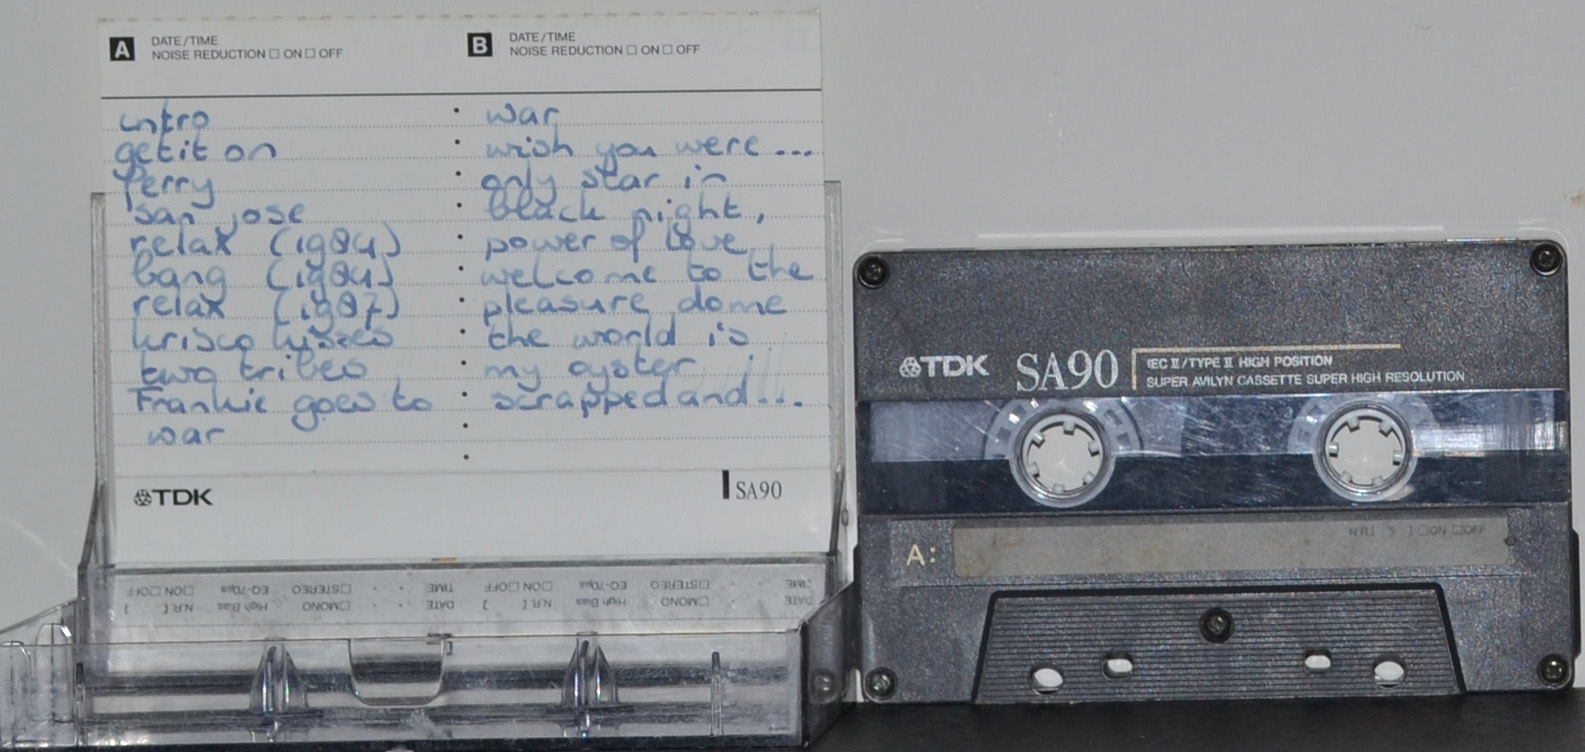 A DATE/TIME
NOISE REDUCTION □ ON □ OFF
intro
get it on
ferry
san jose
relax (1984)
bang (1984)
relax (1987)
krisco kisses
two tribes
Frankie goes to
war
B DATE/TIME
NOISE REDUCTION □ ON □ OFF
war
wish you were ...
only star in
black night,
power of love
welcome to the
pleasure dome
the world is
my oyster
scrapped and ...
TDK
SA90
DATE TIME □MONO □STEREO High Bias EQ-70µs N.R. [ ] □ON □OFF
DATE TIME □MONO □STEREO High Bias EQ-70µs N.R. [ ] □ON □OFF
TDK SA90
IEC II/TYPE II HIGH POSITION
SUPER AVILYN CASSETTE SUPER HIGH RESOLUTION
A:
N.R.[ ] □ON □OFF